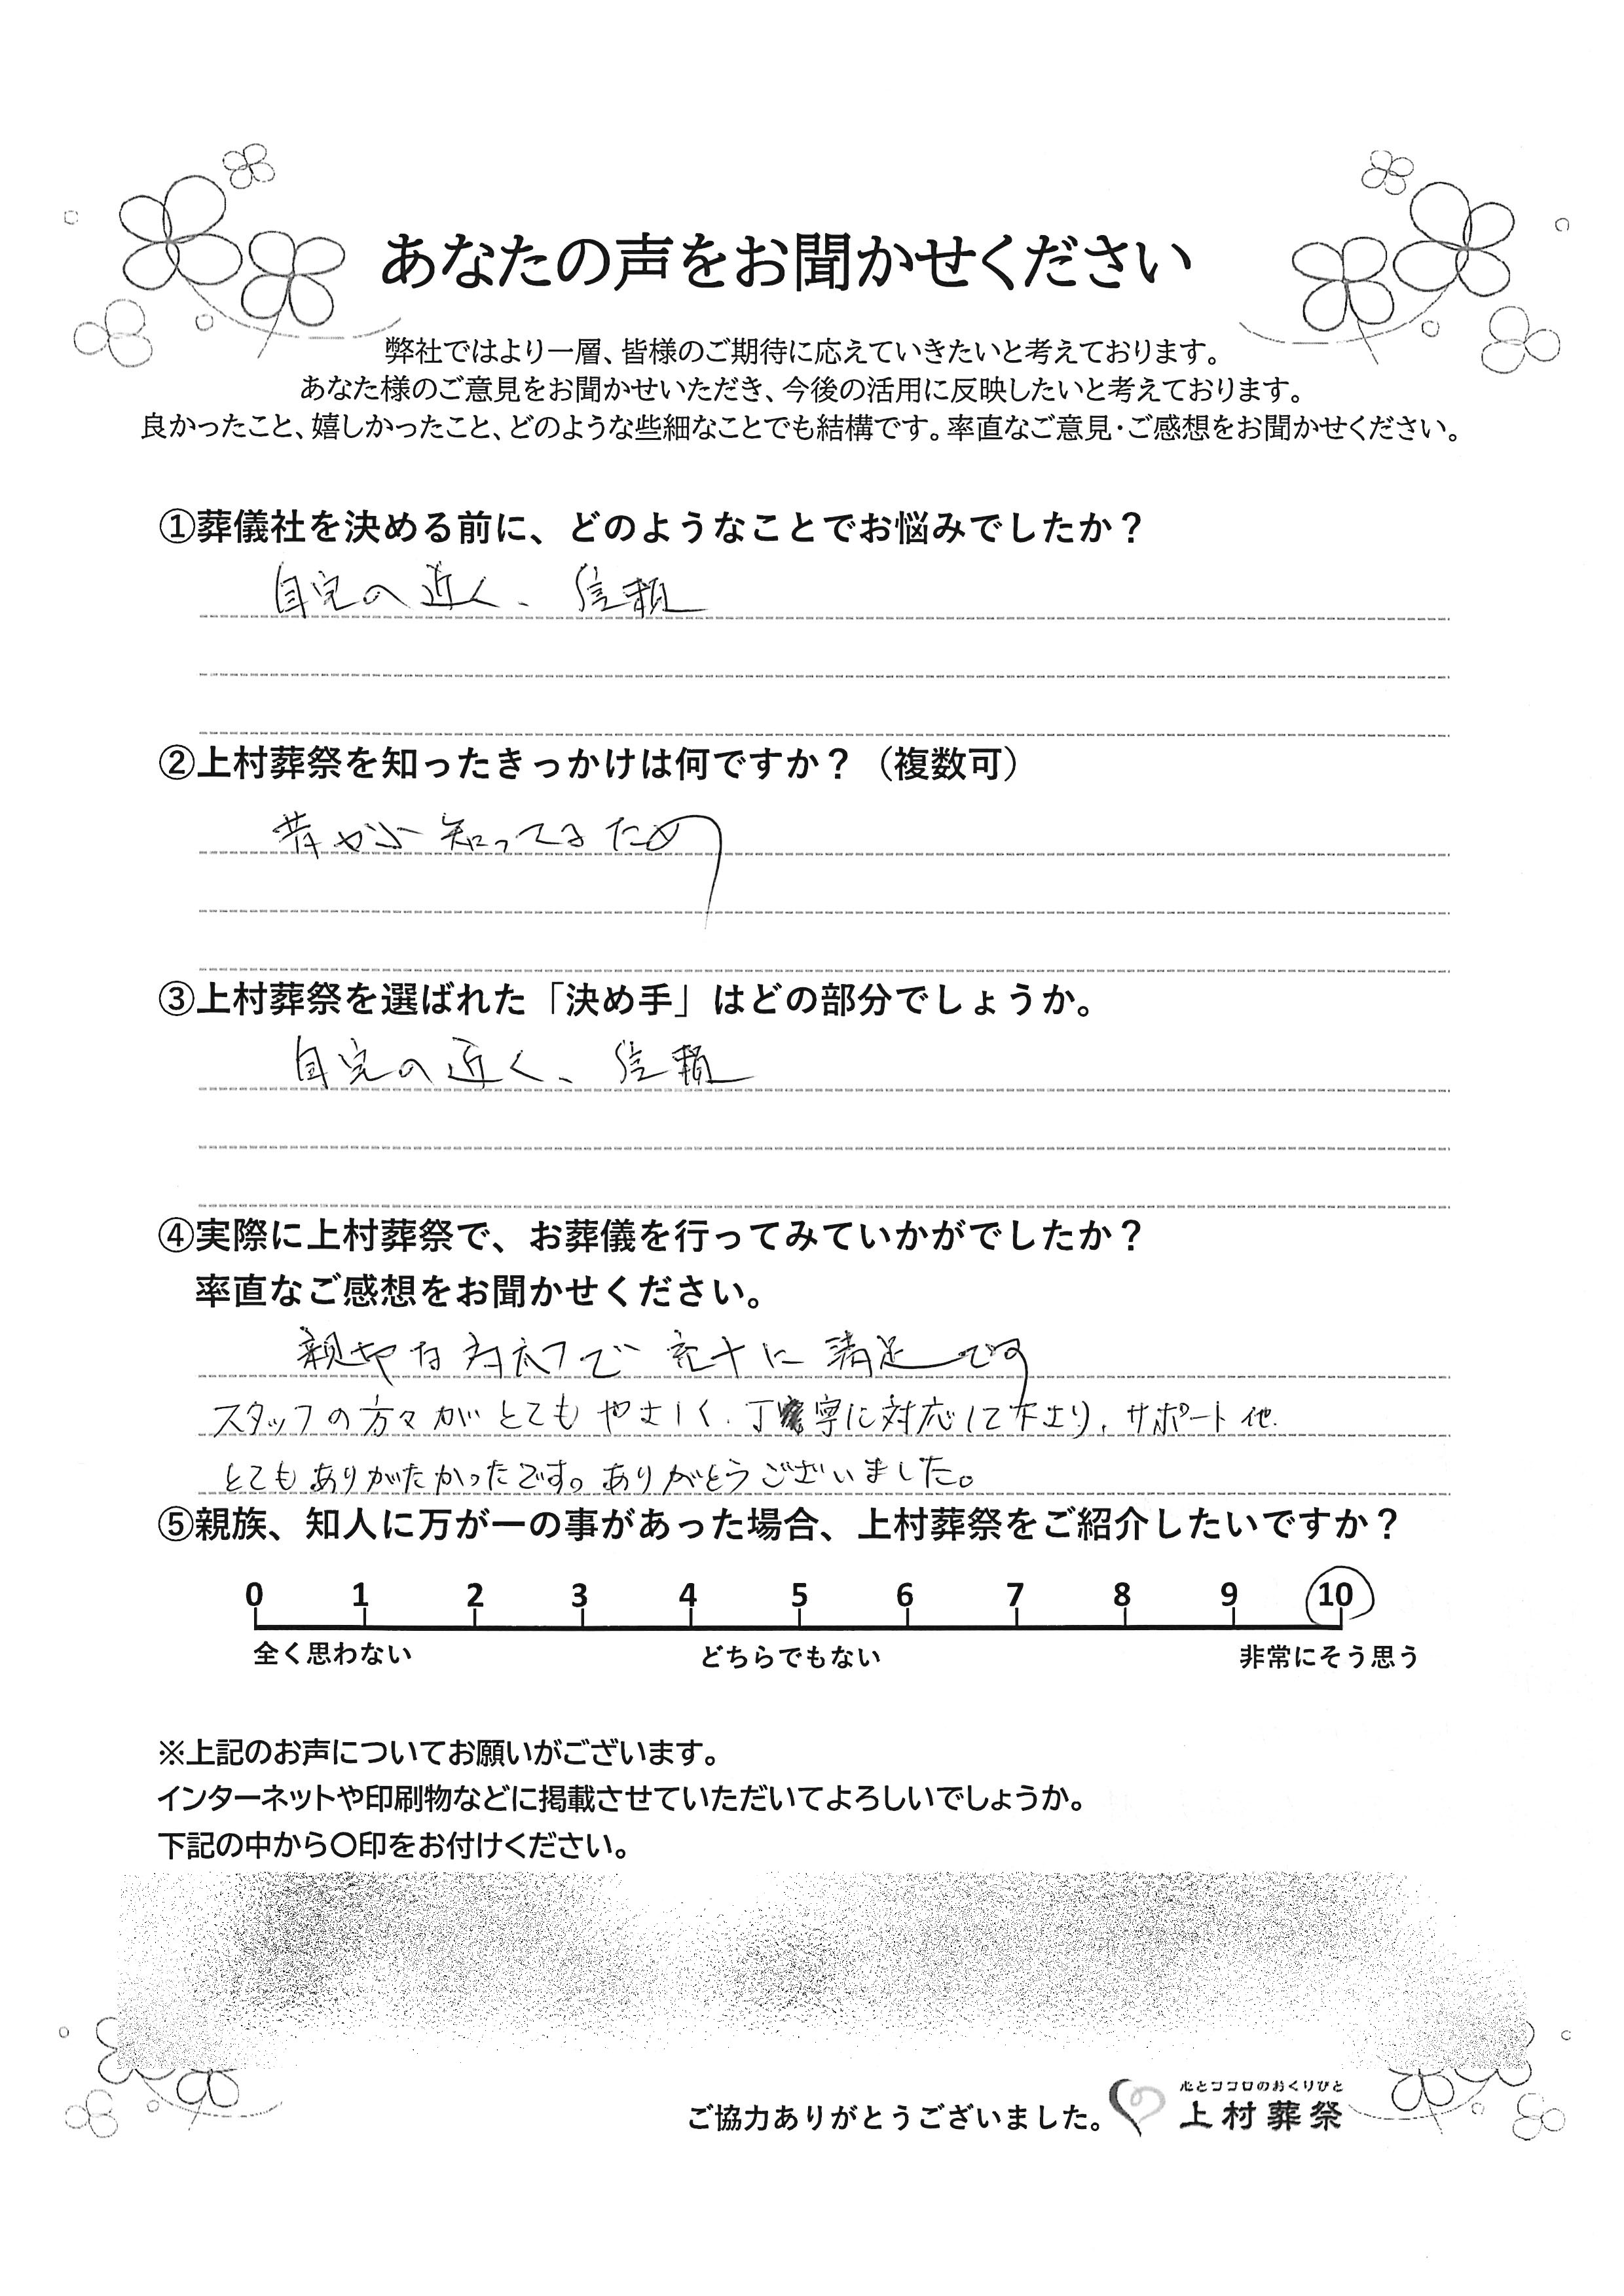 あなたの声をお聞かせください
弊社ではより一層、皆様のご期待に応えていきたいと考えております。
あなた様のご意見をお聞かせいただき、今後の活用に反映したいと考えております。
良かったこと、嬉しかったこと、どのような些細なことでも結構です。率直なご意見・ご感想をお聞かせください。
①葬儀社を決める前に、どのようなことでお悩みでしたか？
自宅の近く、信頼
②上村葬祭を知ったきっかけは何ですか？（複数可）
昔から知ってるため
③上村葬祭を選ばれた「決め手」はどの部分でしょうか。
自宅の近く、信頼
④実際に上村葬祭で、お葬儀を行ってみていかがでしたか？
率直なご感想をお聞かせください。
親切な対応で充分に満足です
スタッフの方々がとてもやさしく、丁寧に対応して下さり、サポート他
とてもありがたかったです。ありがとうございました。
⑤親族、知人に万が一の事があった場合、上村葬祭をご紹介したいですか？
0 1 2 3 4 5 6 7 8 9 10
全く思わない どちらでもない 非常にそう思う
※上記のお声についてお願いがございます。
インターネットや印刷物などに掲載させていただいてよろしいでしょうか。
下記の中から〇印をお付けください。
心とココロのおくりびと
ご協力ありがとうございました。 上村葬祭